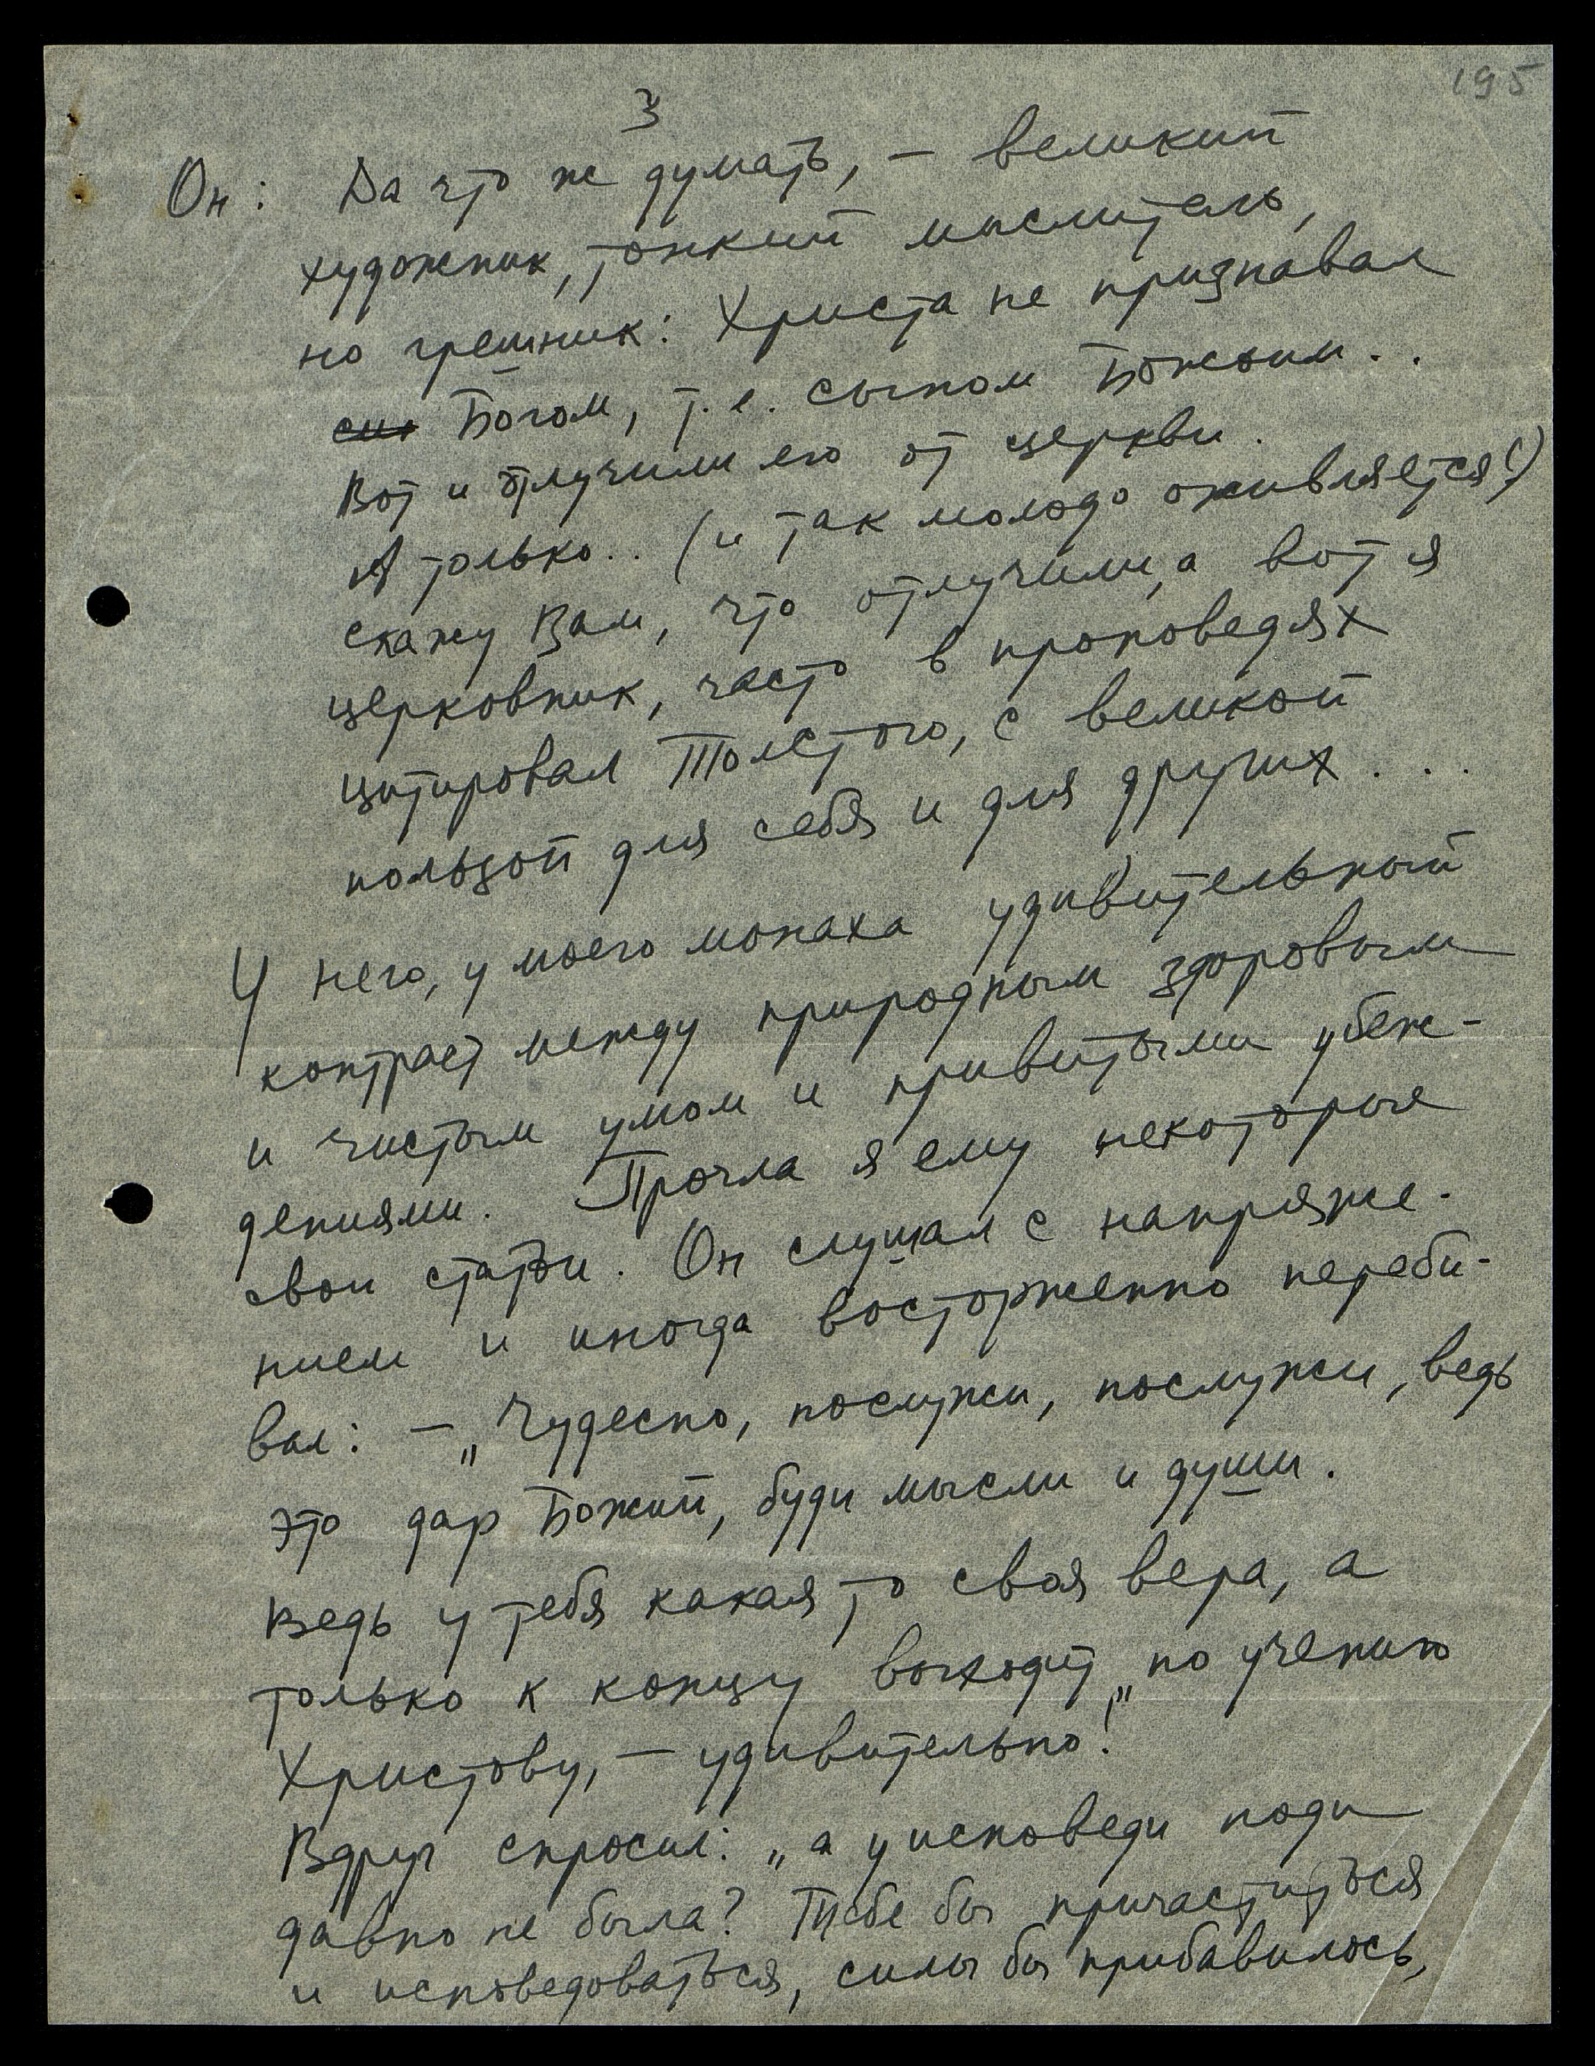 195
3
Он: Да что ж думать, – великий
художник, тонкий мыслитель,
но грешник: Христа не признавал
Богом, т.е. сыном Божьим..
Вот и отлучили его от церкви.
А только.. (и так молодо оживляется!)
скажу Вам, что отлучили, а вот я
церковник, часто в проповедях
цитировал Толстого, с великой
пользой для себя и для других...
У него, у моего монаха удивительный
контраст между природным здоровым
и чистым умом и привитыми убеж-
дениями. Прочла я ему некоторые
свои статьи. Он слушал с напряже-
нием и иногда восторженно переби-
вал: – „Чудесно, послужи, послужи, ведь
это дар Божий, буди мысли и души.
Ведь у тебя какая то своя вера, а
только к концу выходит „по учению
Христову, – удивительно!
Вдруг спросил: „а у исповеди поди
давно не была? Тебе бы причаститься
и исповедоваться, силы бы прибавилось,